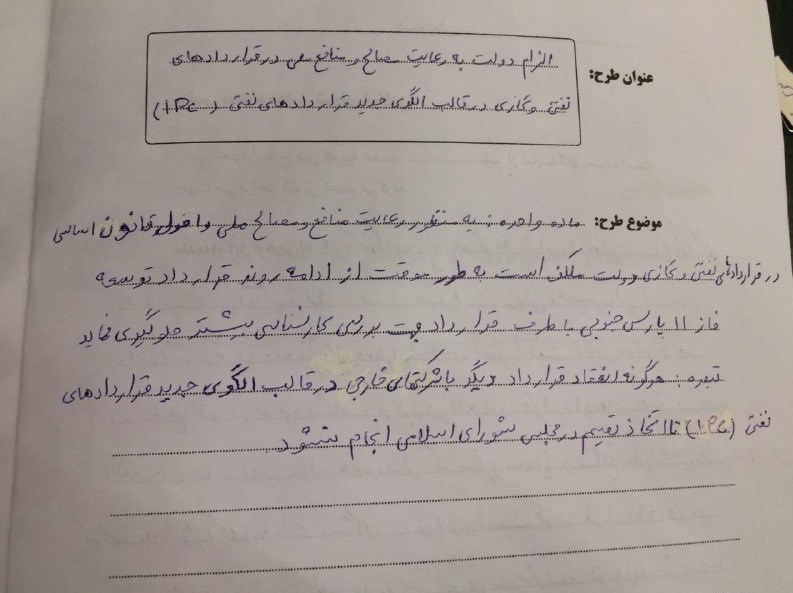 عنوان طرح: الزام دولت به رعایت مصالح و منافع ملی در قراردادهای
نفتی و گازی در قالب الگوی جدید قراردادهای نفتی (IPC)
موضوع طرح: ماده واحده: به منظور رعایت منافع و مصالح ملی و اصول قانون اساسی
در قراردادهای نفتی و گازی دولت مکلف است به طور موقت از ادامه روند قرارداد توسعه
فاز ۱۱ پارس جنوبی با طرف قرارداد جهت بررسی کارشناسی بیشتر جلوگیری نماید
تبصره: هرگونه انعقاد قرارداد دیگر با شرکتهای خارجی در قالب الگوی جدید قراردادهای
نفتی (IPC) تا اتخاذ تصمیم در مجلس شورای اسلامی انجام نشود